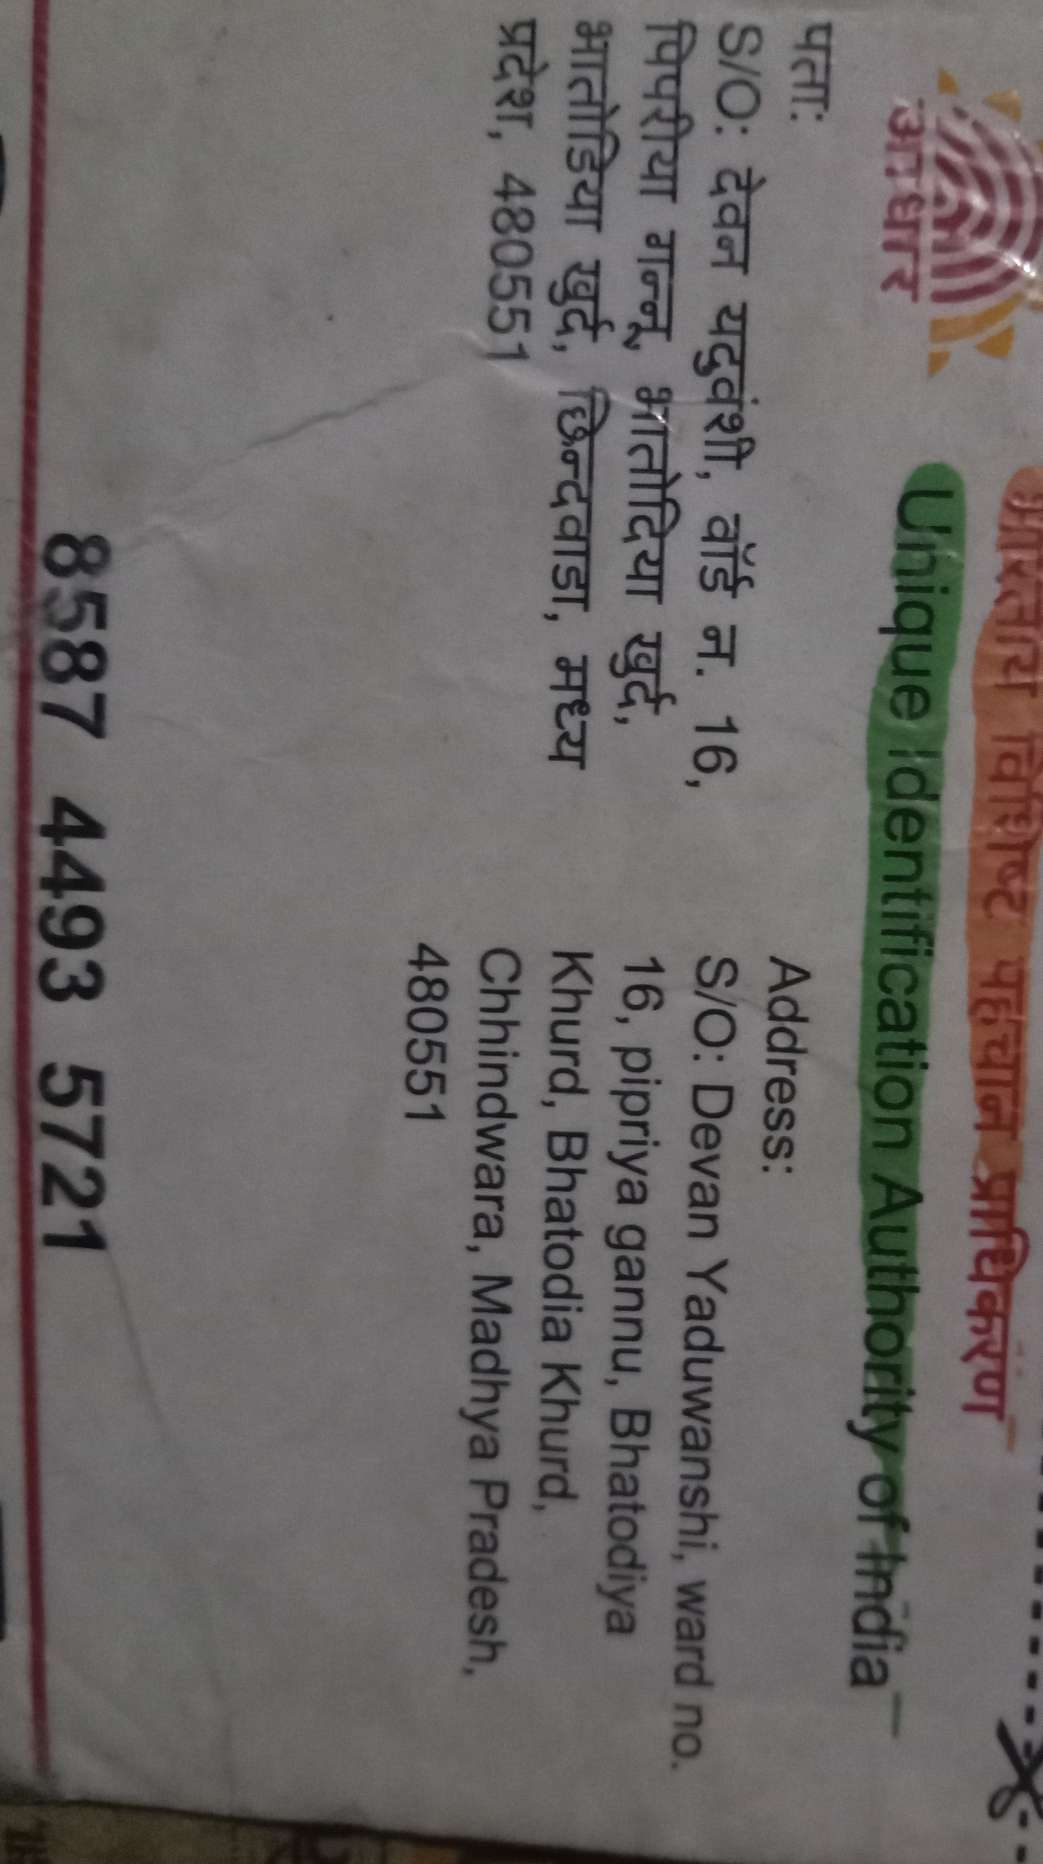 आधार
भारतीय विशिष्ट पहचान प्राधिकरण
Unique Identification Authority of India
पता:
S/O: देवन यदुवंशी, वॉर्ड न. 16,
पिपरीया गन्नू, भातोदिया खुर्द,
भातोडिया खुर्द, छिन्दवाडा, मध्य
प्रदेश, 480551
Address:
S/O: Devan Yaduwanshi, ward no.
16, pipriya gannu, Bhatodiya
Khurd, Bhatodia Khurd,
Chhindwara, Madhya Pradesh,
480551
8587 4493 5721